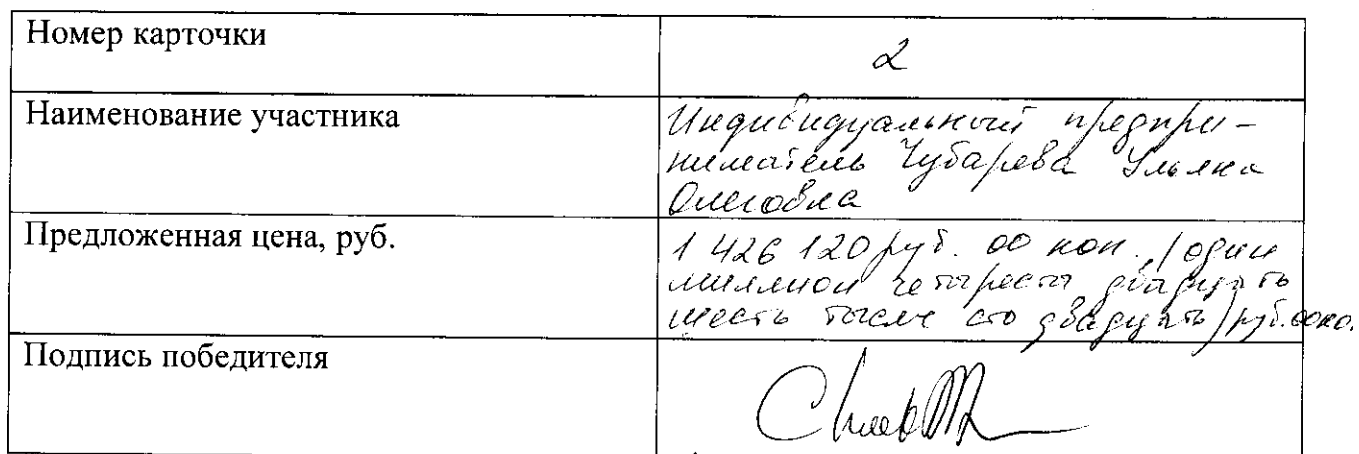 Номер карточки 2
Наименование участника Индивидуальный предпри-
ниматель Чубарева Ульяна
Олеговна
Предложенная цена, руб. 1 426 120 руб. 00 коп. (один
миллион четыреста двадцать
шесть тысяч сто двадцать) руб. 00 ко.
Подпись победителя